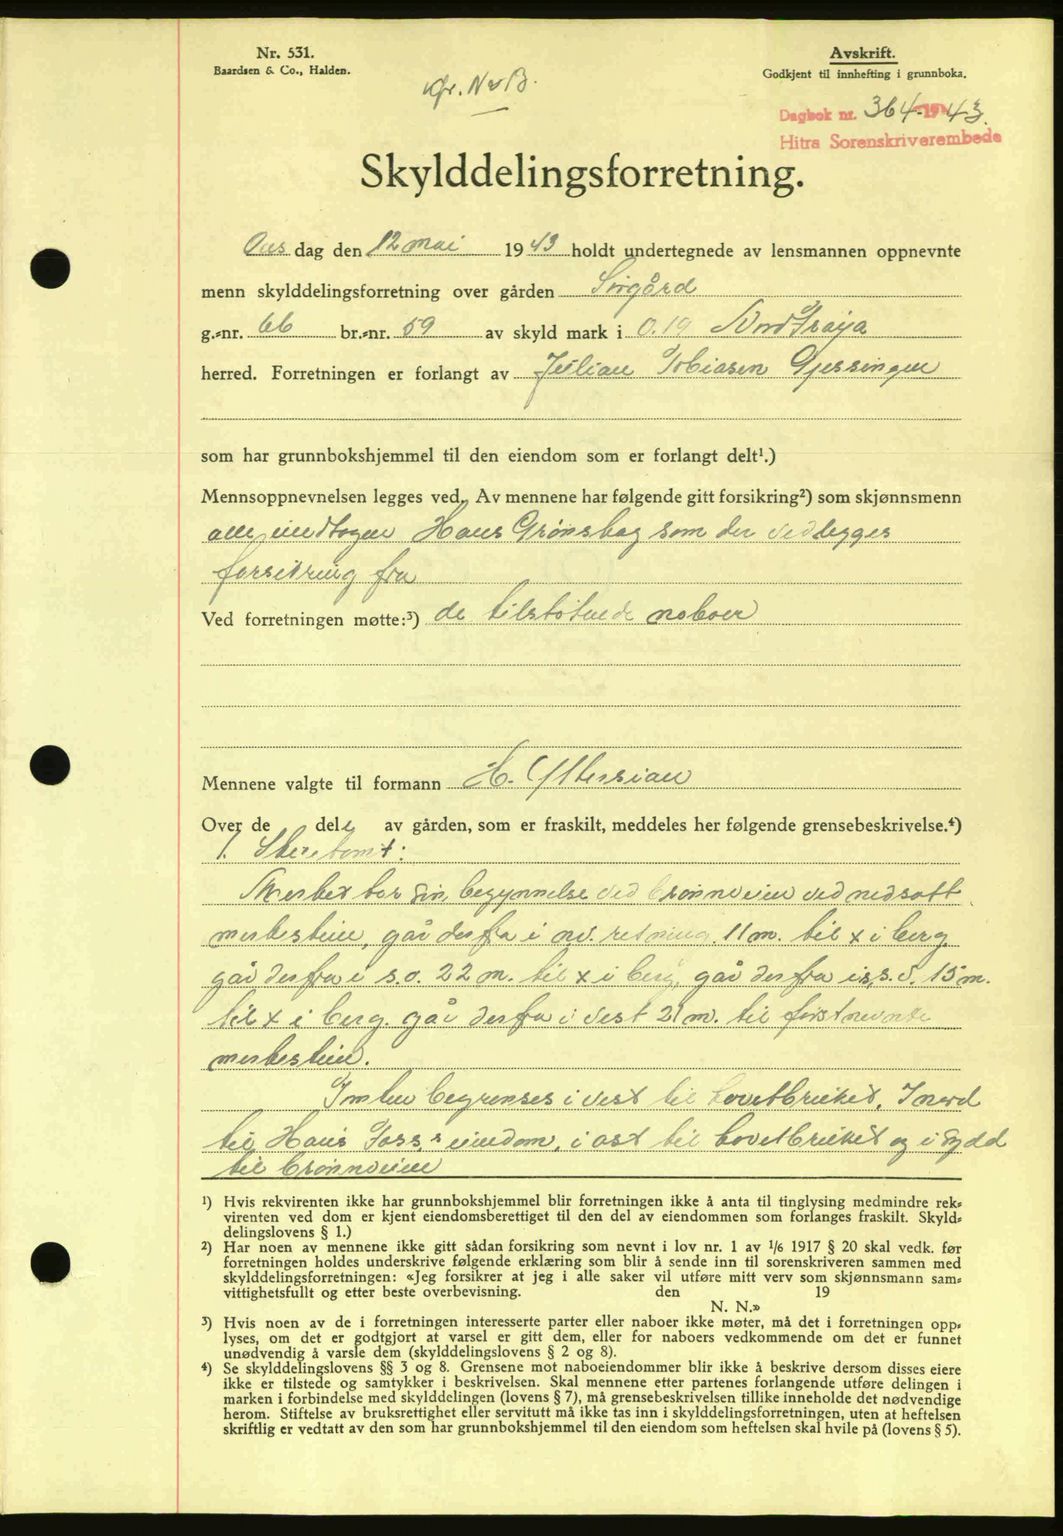 Nr. 531.
Baardsen & Co., Halden.
Avskrift.
Godkjent til innhefting i grunnboka.
Dagbok nr. 364-1943.
Hitra Sorenskriverembede
Skylddelingsforretning.
Ons dag den 12 mai 1943 holdt undertegnede av lensmannen oppnevnte
menn skylddelingsforretning over gården Sørgård
g.-nr. 66 br.-nr. 59 av skyld mark i 0.19 Nord Frøya
herred. Forretningen er forlangt av Julian Tobiasen Gjessingen
som har grunnbokshjemmel til den eiendom som er forlangt delt¹.)
Mennsoppnevnelsen legges ved. Av mennene har følgende gitt forsikring²) som skjønnsmenn
alle, undtagen Hans Grønskag som der vedlegges
forsikring fra
Ved forretningen møtte:³) de tilstøtende naboer
Mennene valgte til formann H.
Over de dele av gården, som er fraskilt, meddeles her følgende grensebeskrivelse.⁴)
1.
Merket tar sin begynnelse ved brønnveien ved nedsatt
merkestein, går derfra i nv. retning 11 m. til x i berg
går derfra i s.o. 22 m. til x i berg, går derfra i s.s.v. 15 m.
til x i berg. går derfra i vest 21 m. til førstnevnte
merkestein.
Tomten begrenses i vest til hovetbruket, I nord
til Hans Foss's eiendom, i ost til hovetbruket og i sydd
til brønnveien
¹) Hvis rekvirenten ikke har grunnbokshjemmel blir forretningen ikke å anta til tinglysing medmindre rek-
virenten ved dom er kjent eiendomsberettiget til den del av eiendommen som forlanges fraskilt. Skyld-
delingslovens § 1.)
²) Har noen av mennene ikke gitt sådan forsikring som nevnt i lov nr. 1 av 1/6 1917 § 20 skal vedk. før
forretningen holdes underskrive følgende erklæring som blir å sende inn til sorenskriveren sammen med
skylddelingsforretningen: «Jeg forsikrer at jeg i alle saker vil utføre mitt verv som skjønnsmann sam-
vittighetsfullt og etter beste overbevisning. den 19
N. N.»
³) Hvis noen av de i forretningen interesserte parter eller naboer ikke møter, må det i forretningen opp-
lyses, om det er godtgjort at varsel er gitt dem, eller for naboers vedkommende om det er funnet
unødvendig å varsle dem (skylddelingslovens § 2 og 8).
⁴) Se skylddelingslovens §§ 3 og 8. Grensene mot naboeiendommer blir ikke å beskrive dersom disses eiere
ikke er tilstede og samtykker i beskrivelsen. Skal mennene etter partenes forlangende utføre delingen i
marken i forbindelse med skylddelingen (lovens § 7), må grensebeskrivelsen tillike inneholde det nødvendige
herom. Stiftelse av bruksrettighet eller servitutt må ikke tas inn i skylddelingsforretningen, uten at heftelsen
skriftlig er vedtatt av den som har grunnbokshjemmel til den eiendom som heftelsen skal hvile på (lovens § 5).